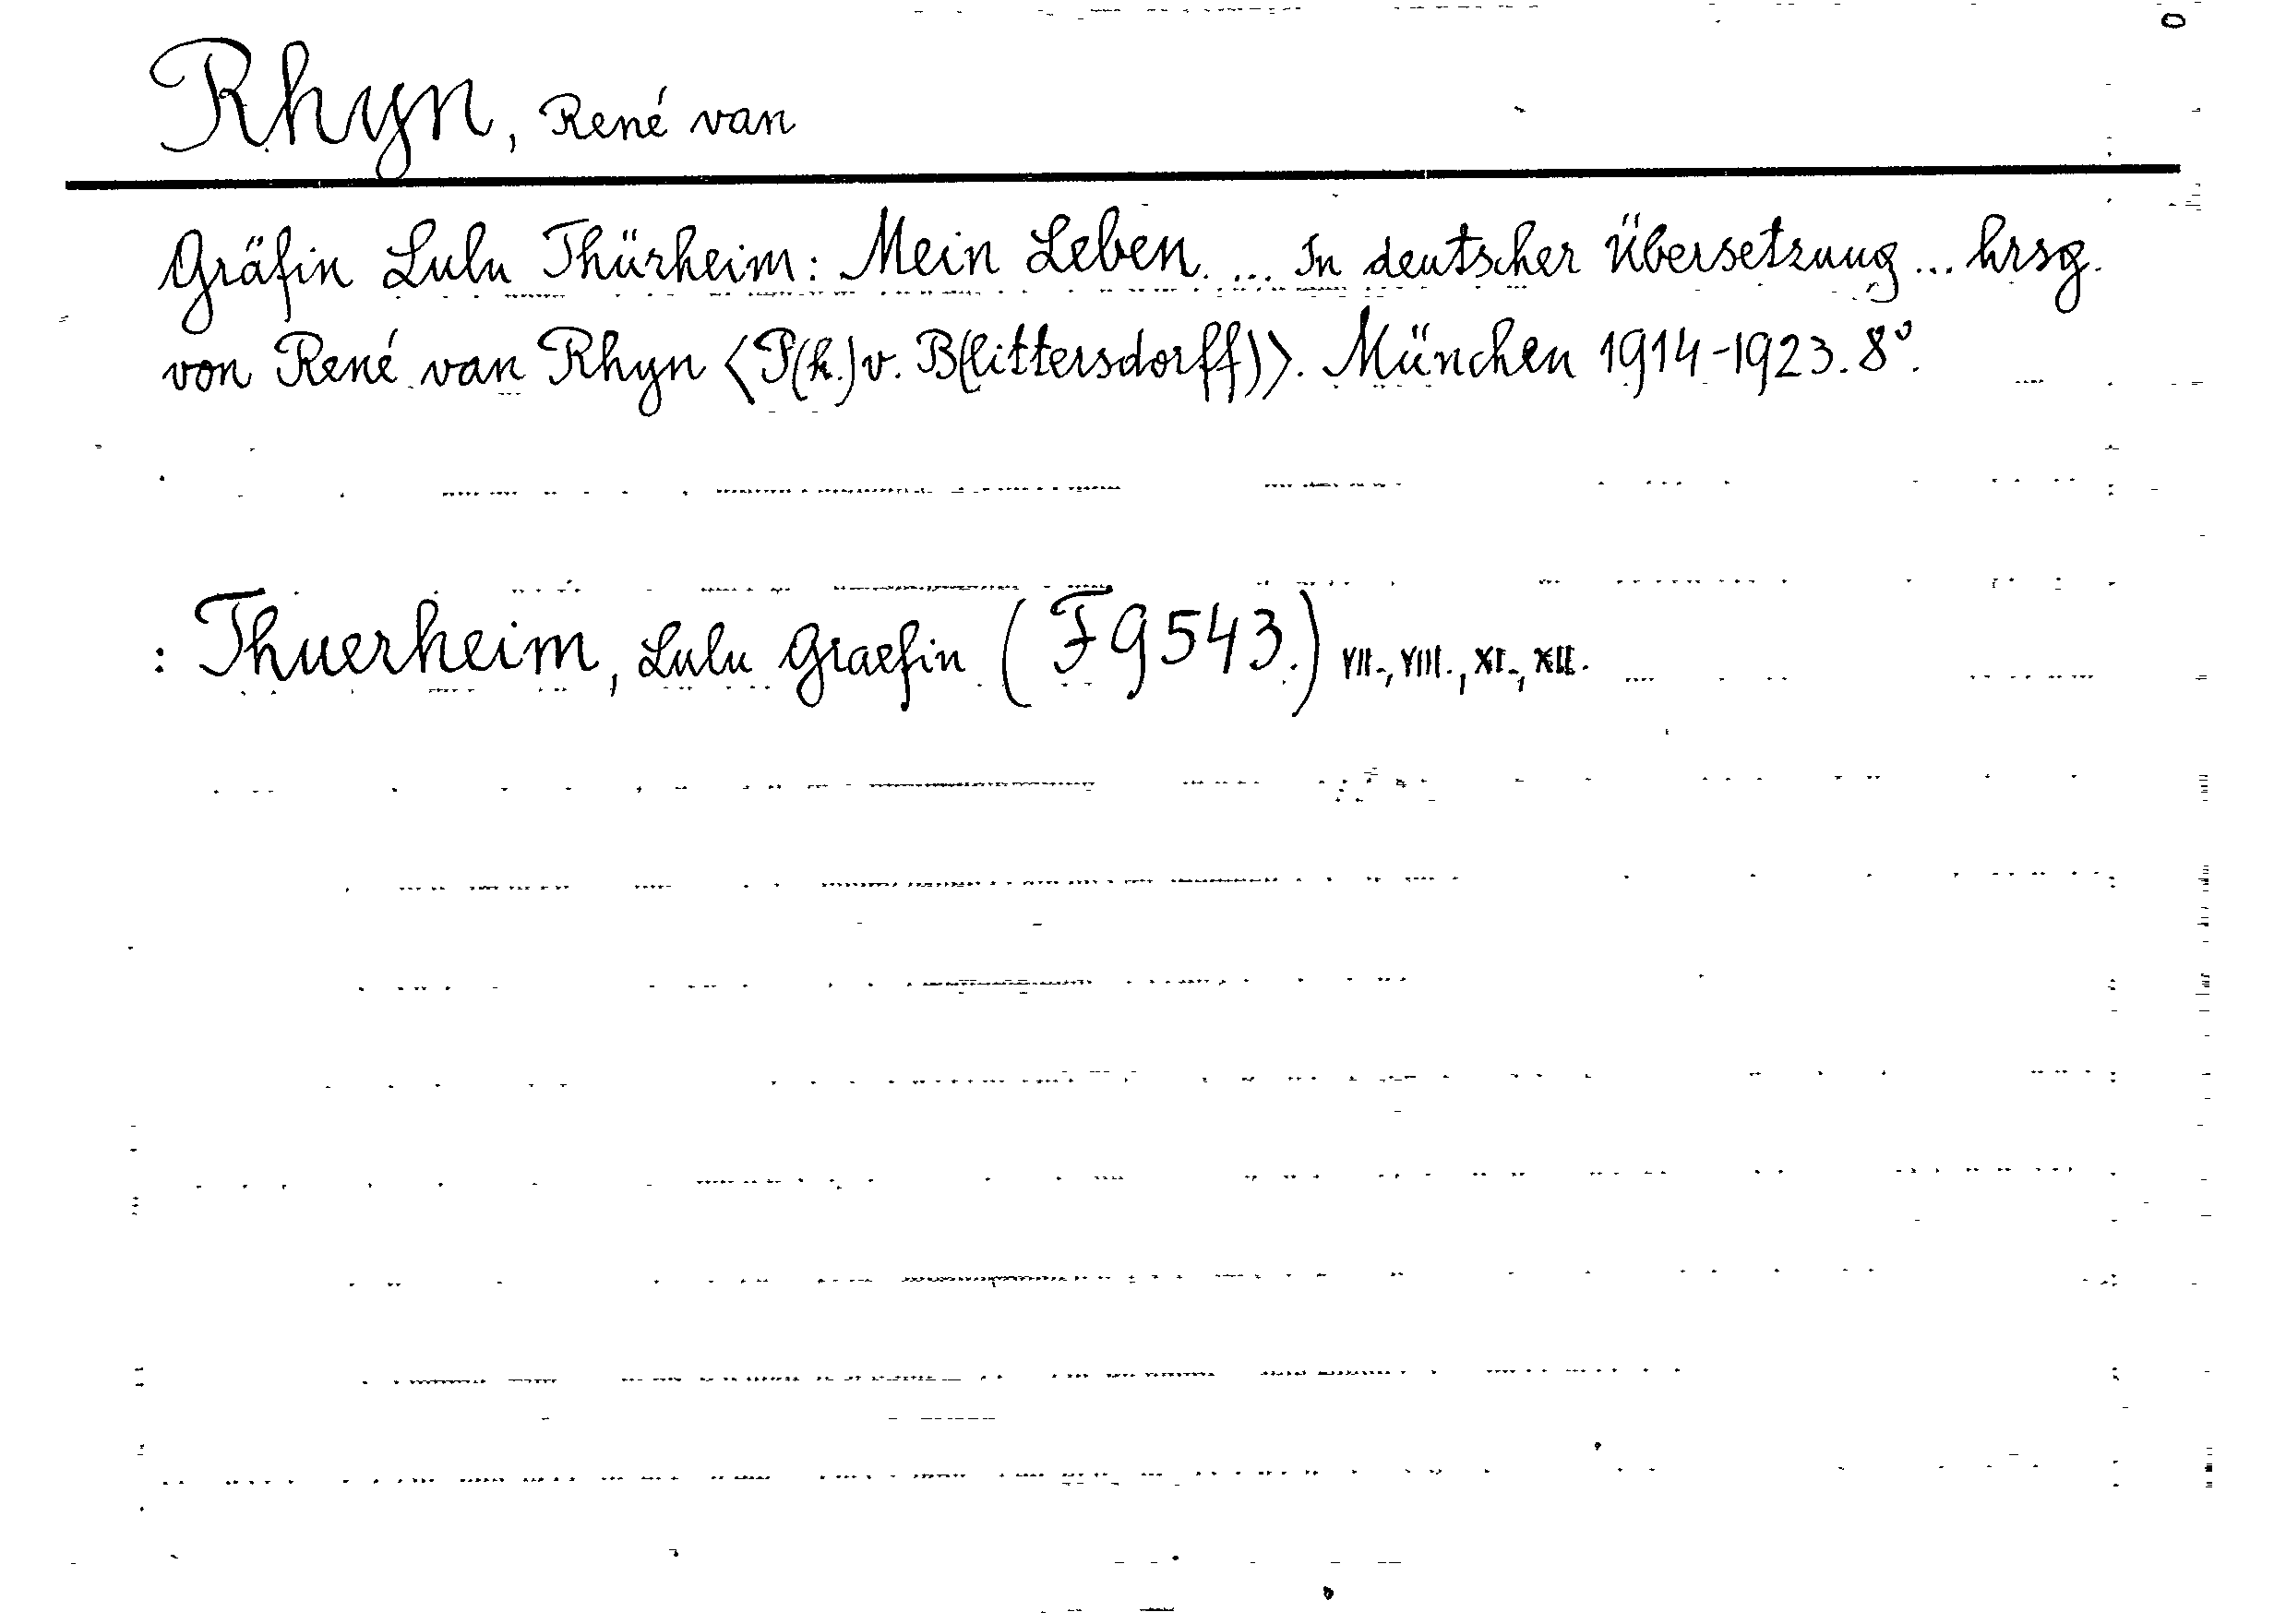 Rhyn, René van
Gräfin Lulu Thürheim: Mein Leben. ... In deutscher Übersetzung ... hrsg.
von René van Rhyn <P(h.) v. B(littersdorff)>. München 1914-1923. 8°.
: Thuerheim, Lulu Graefin (F9543.) VII., VIII., XI., XII.